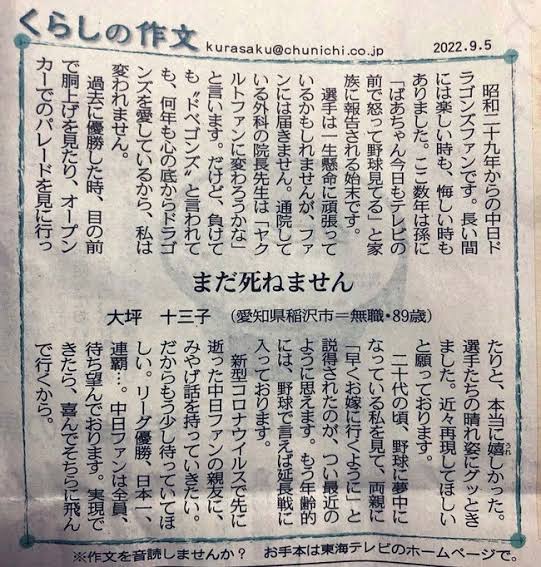 くらしの作文
kurasaku@chunichi.co.jp
2022.9.5
昭和二十九年からの中日ド
ラゴンズファンです。長い間
には楽しい時も、悔しい時も
ありました。ここ数年は孫に
「ばあちゃん今日もテレビの
前で怒って野球見てる」と家
族に報告される始末です。
選手は一生懸命に頑張って
いるかもしれませんが、ファ
ンには届きません。通院して
いる外科の院長先生は「ヤク
ルトファンに変わろうかな」
と言います。だけど、負けて
も〝ドベゴンズ〟と言われて
も、何年も心の底からドラゴ
ンズを愛しているから、私は
変われません。
過去に優勝した時、目の前
で胴上げを見たり、オープン
カーでのパレードを見に行っ
まだ死ねません
大坪 十三子 (愛知県稲沢市=無職・89歳)
たりと、本当に嬉しかった。
うれ
選手たちの晴れ姿にグッとき
ました。近々再現してほしい
と願っております。
二十代の頃、野球に夢中に
なっている私を見て、両親に
「早くお嫁に行くように」と
説得されたのが、つい最近の
ように思えます。もう年齢的
には、野球で言えば延長戦に
入っております。
新型コロナウイルスで先に
逝った中日ファンの親友に、
みやげ話を持っていきたい。
だからもう少し待っていてほ
しい。リーグ優勝、日本一、
連覇…。中日ファンは全員、
待ち望んでおります。実現で
きたら、喜んでそちらに飛ん
で行くから。
※作文を音読しませんか? お手本は東海テレビのホームページで。